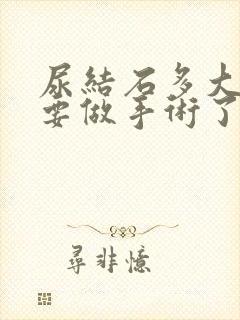 尿結石多大
要做手術了
尋非憶